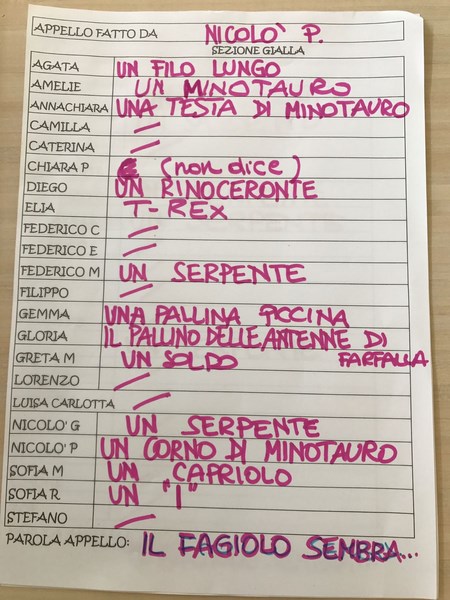 APPELLO FATTO DA NICOLO' P.
SEZIONE GIALLA
AGATA UN FILO LUNGO
AMELIE UN MINOTAURO
ANNACHIARA UNA TESTA DI MINOTAURO
CAMILLA /
CATERINA /
CHIARA P (non dice)
DIEGO UN RINOCERONTE
ELIA T-REX
FEDERICO C /
FEDERICO E /
FEDERICO M UN SERPENTE
FILIPPO /
GEMMA UNA PALLINA PICCINA
GLORIA IL PALLINO DELLE ANTENNE DI
FARFALLA
GRETA M UN SOLDO
LORENZO /
LUISA CARLOTTA /
NICOLO' G UN SERPENTE
NICOLO' P UN CORNO DI MINOTAURO
SOFIA M UN CAPRIOLO
SOFIA R UN "I"
STEFANO /
PAROLA APPELLO: IL FAGIOLO SEMBRA...